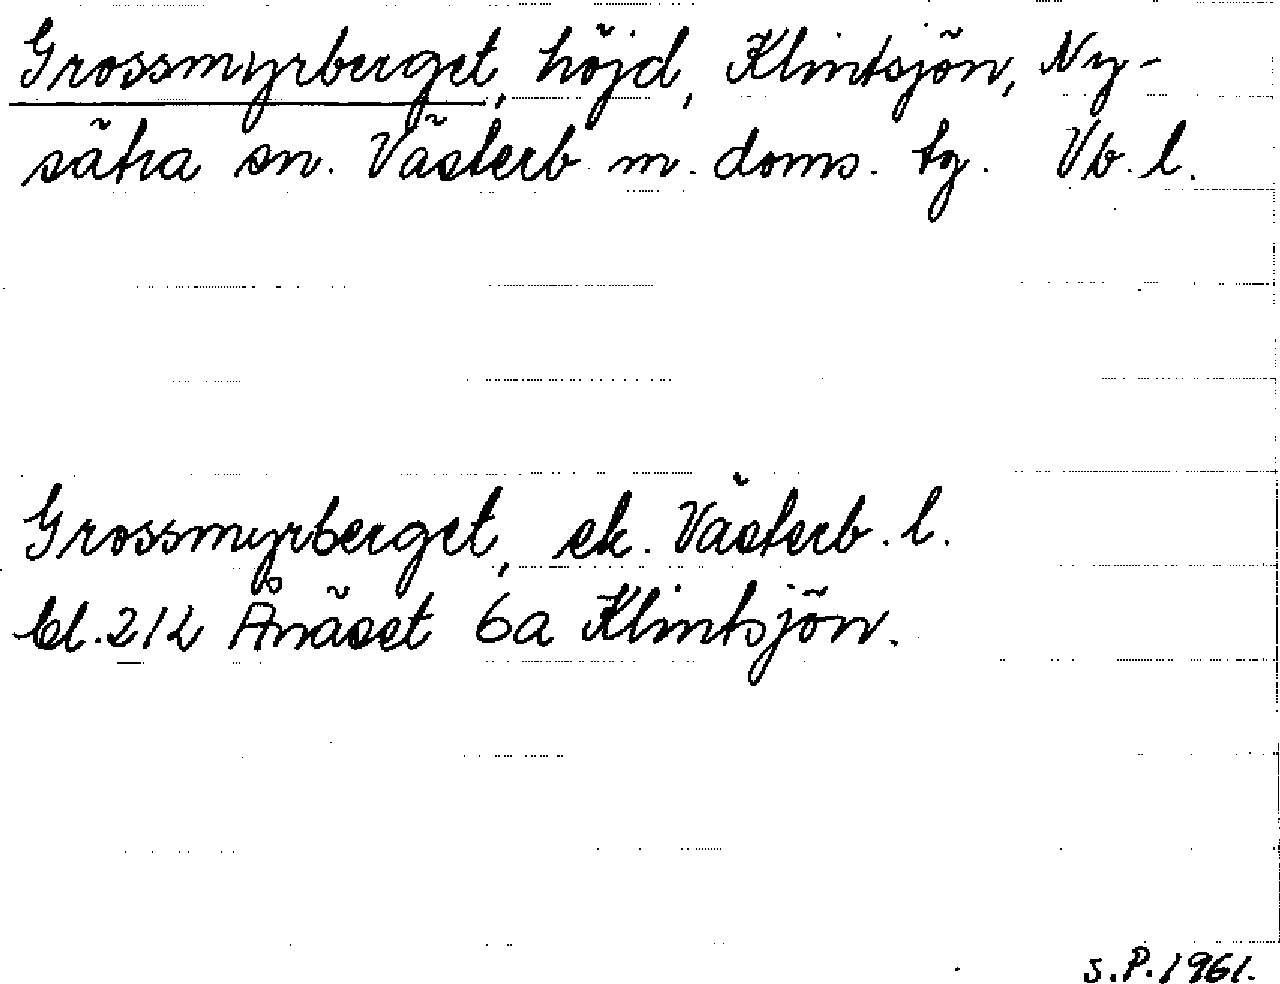 Grossmyrberget, höjd, Klintsjön, Ny-
sätra sn. Västerb m. doms. tg. Vb. l.
Grossmyrberget, ek. Västerb. l.
bl. 212 Ånäset 6a Klintsjön.
S.P. 1961.